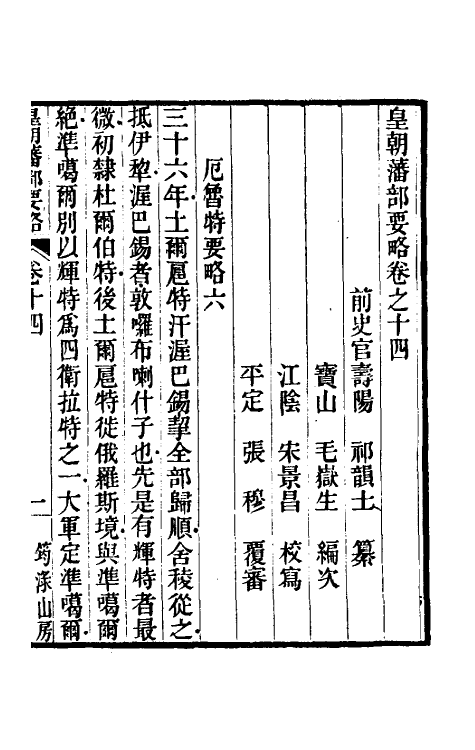 皇朝藩部要略卷之十四
前史官壽陽 祁韻士 纂
寶山 毛嶽生 編次
江陰 宋景昌 校寫
平定 張穆 覆審
厄魯特要略六
三十六年土爾扈特汗渥巴錫挈全部歸順舍稜從之
抵伊犂渥巴錫者敦囉布喇什子也先是有輝特者最
微初隸杜爾伯特後土爾扈特徙俄羅斯境與準噶爾
絶準噶爾別以輝特爲四衛拉特之一大軍定準噶爾
皇朝藩部要略 卷十四 一 筠淥山房